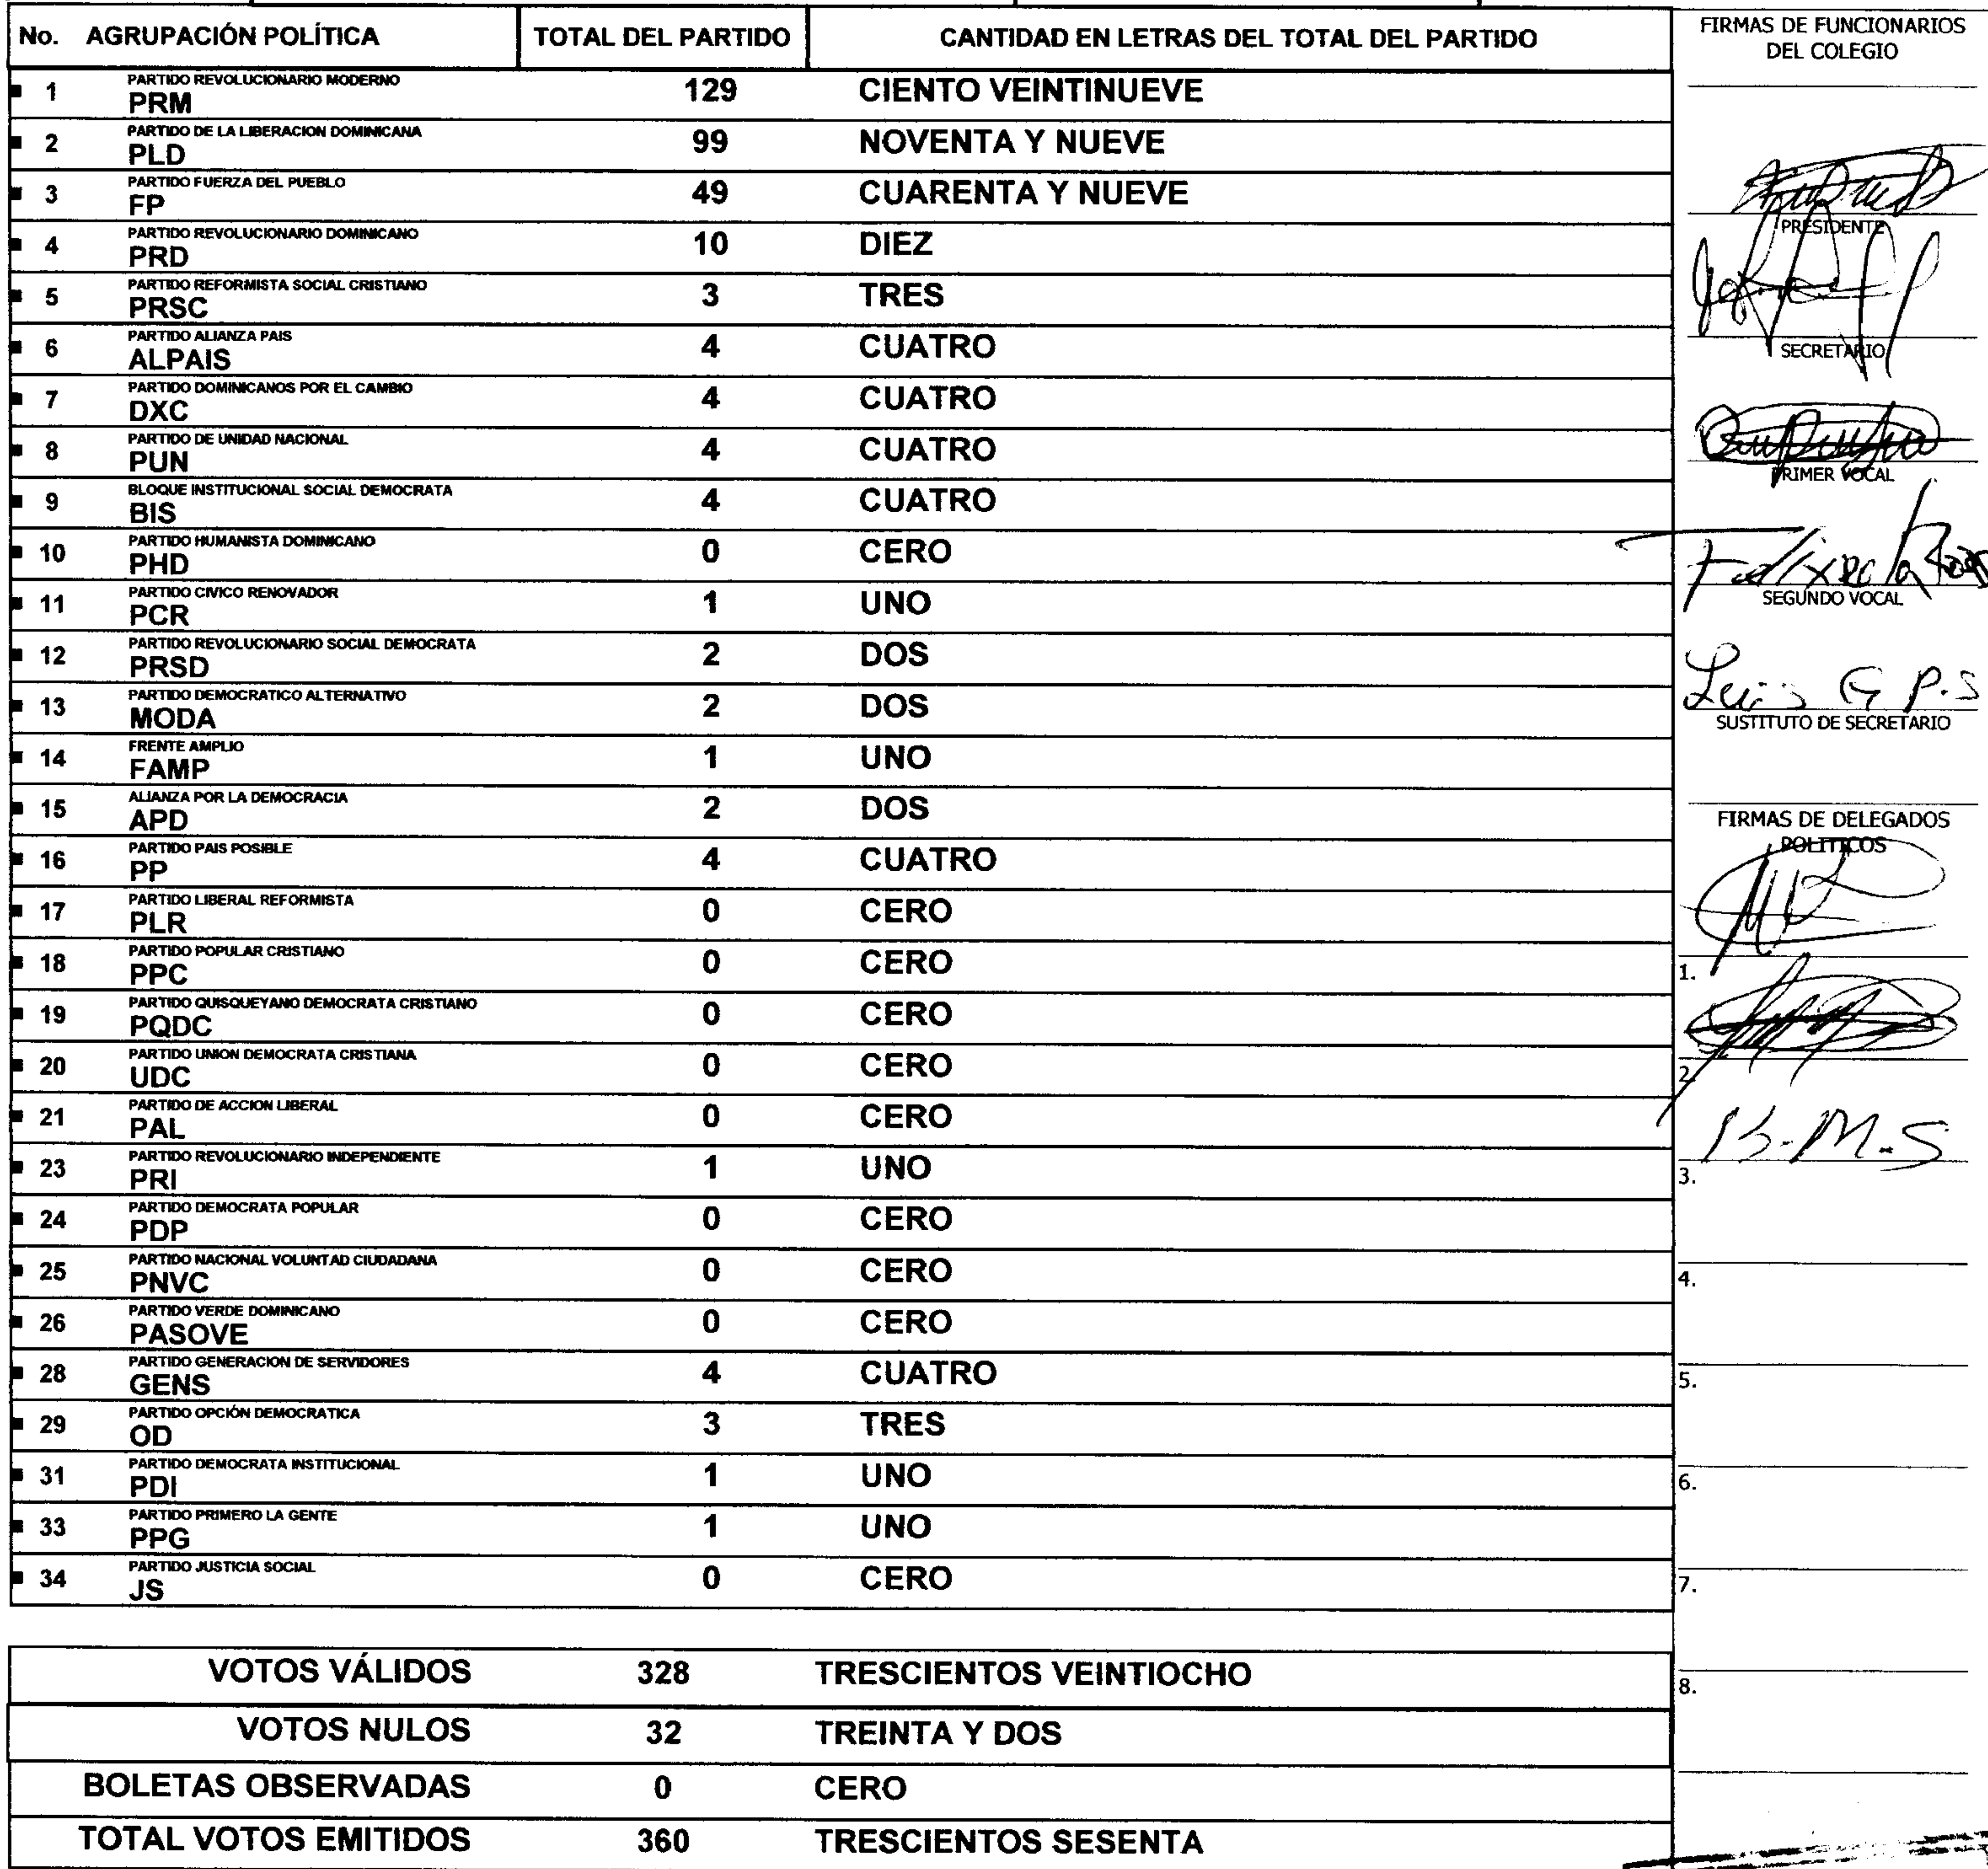 No. AGRUPACIÓN POLÍTICA TOTAL DEL PARTIDO CANTIDAD EN LETRAS DEL TOTAL DEL PARTIDO
PARTIDO REVOLUCIONARIO MODERNO
1 PRM 129 CIENTO VEINTINUEVE
PARTIDO DE LA LIBERACION DOMINICANA
2 PLD 99 NOVENTA Y NUEVE
PARTIDO FUERZA DEL PUEBLO
3 FP 49 CUARENTA Y NUEVE
PARTIDO REVOLUCIONARIO DOMINICANO
4 PRD 10 DIEZ
PARTIDO REFORMISTA SOCIAL CRISTIANO
5 PRSC 3 TRES
PARTIDO ALIANZA PAIS
6 ALPAIS 4 CUATRO
PARTIDO DOMINICANOS POR EL CAMBIO
7 DXC 4 CUATRO
PARTIDO DE UNIDAD NACIONAL
8 PUN 4 CUATRO
BLOQUE INSTITUCIONAL SOCIAL DEMOCRATA
9 BIS 4 CUATRO
PARTIDO HUMANISTA DOMINICANO
10 PHD 0 CERO
PARTIDO CIVICO RENOVADOR
11 PCR 1 UNO
PARTIDO REVOLUCIONARIO SOCIAL DEMOCRATA
12 PRSD 2 DOS
PARTIDO DEMOCRATICO ALTERNATIVO
13 MODA 2 DOS
FRENTE AMPLIO
14 FAMP 1 UNO
ALIANZA POR LA DEMOCRACIA
15 APD 2 DOS
PARTIDO PAIS POSIBLE
16 PP 4 CUATRO
PARTIDO LIBERAL REFORMISTA
17 PLR 0 CERO
PARTIDO POPULAR CRISTIANO
18 PPC 0 CERO
PARTIDO QUISQUEYANO DEMOCRATA CRISTIANO
19 PQDC 0 CERO
PARTIDO UNION DEMOCRATA CRISTIANA
20 UDC 0 CERO
PARTIDO DE ACCION LIBERAL
21 PAL 0 CERO
PARTIDO REVOLUCIONARIO INDEPENDIENTE
23 PRI 1 UNO
PARTIDO DEMOCRATA POPULAR
24 PDP 0 CERO
PARTIDO NACIONAL VOLUNTAD CIUDADANA
25 PNVC 0 CERO
PARTIDO VERDE DOMINICANO
26 PASOVE 0 CERO
PARTIDO GENERACION DE SERVIDORES
28 GENS 4 CUATRO
PARTIDO OPCIÓN DEMOCRATICA
29 OD 3 TRES
PARTIDO DEMOCRATA INSTITUCIONAL
31 PDI 1 UNO
PARTIDO PRIMERO LA GENTE
33 PPG 1 UNO
PARTIDO JUSTICIA SOCIAL
34 JS 0 CERO
VOTOS VÁLIDOS 328 TRESCIENTOS VEINTIOCHO
VOTOS NULOS 32 TREINTA Y DOS
BOLETAS OBSERVADAS 0 CERO
TOTAL VOTOS EMITIDOS 360 TRESCIENTOS SESENTA
FIRMAS DE FUNCIONARIOS
DEL COLEGIO
PRESIDENTE
SECRETARIO
PRIMER VOCAL
SEGUNDO VOCAL
Luis G P.S
SUSTITUTO DE SECRETARIO
FIRMAS DE DELEGADOS
POLITICOS
1.
2.
3.
4.
5.
6.
7.
8.